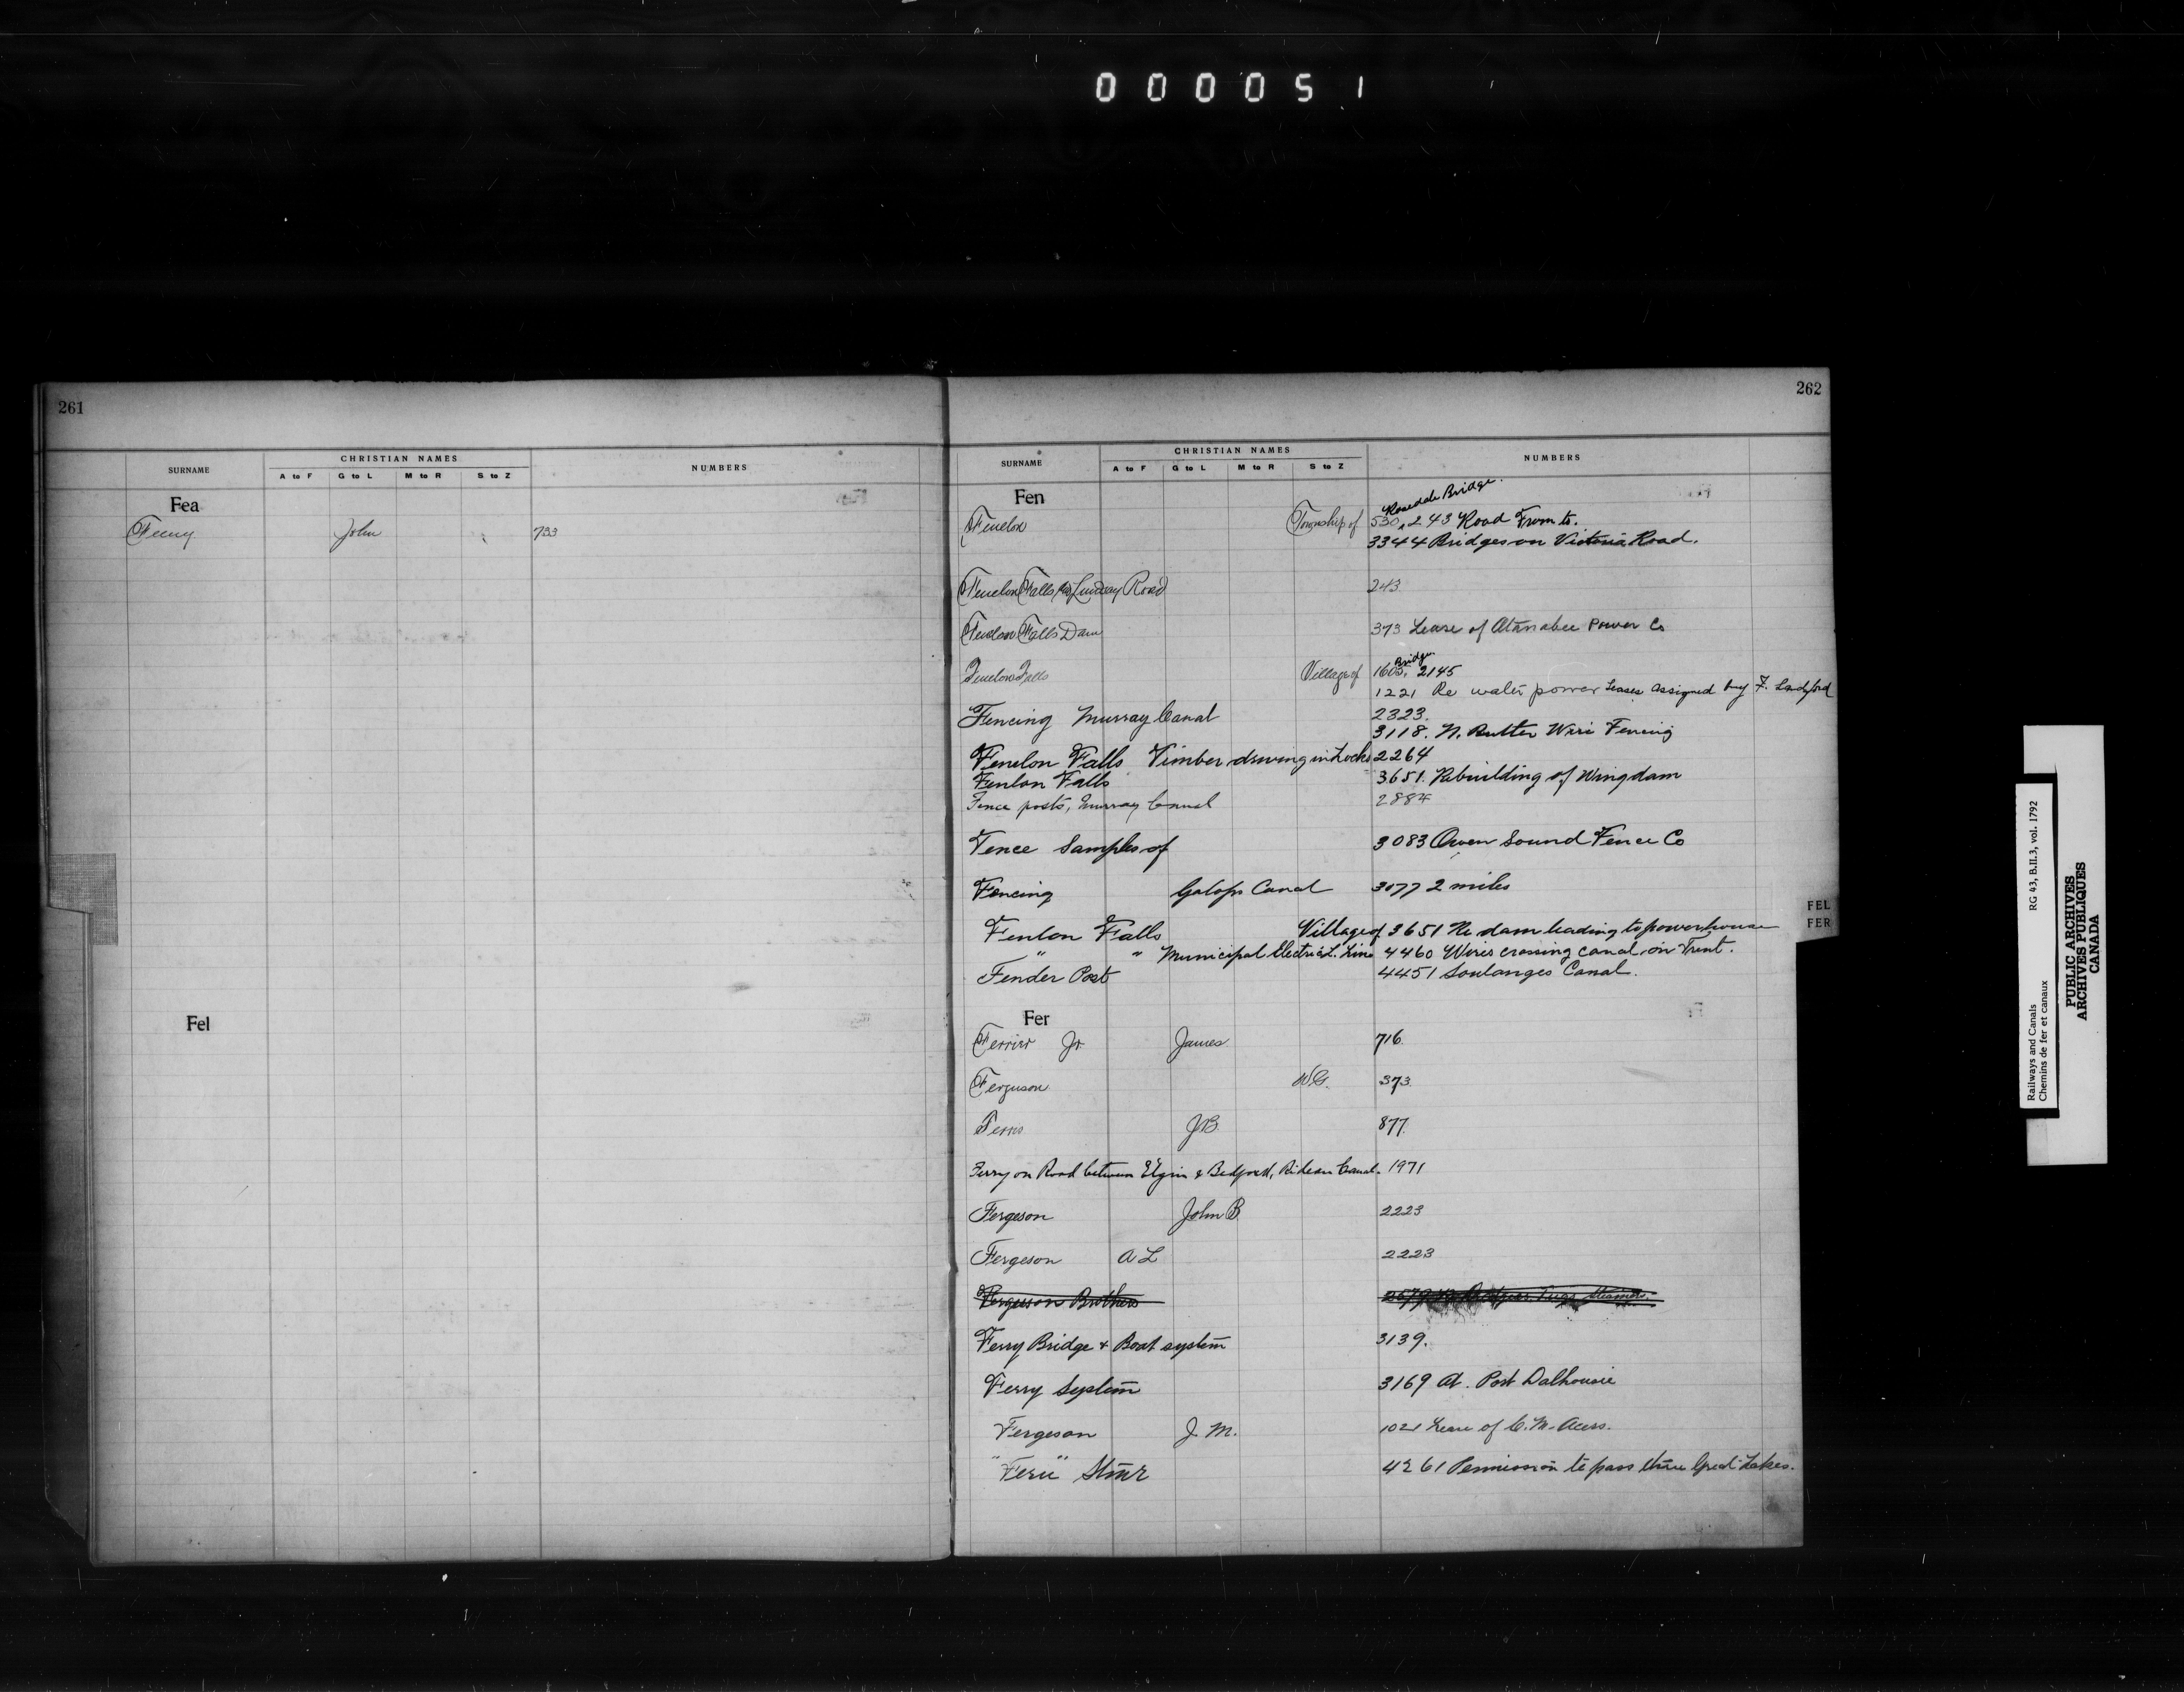 000051
261
SURNAME CHRISTIAN NAMES NUMBERS
A to F G to L M to R S to Z
Fea
Feeny John 733
Fel
262
SURNAME CHRISTIAN NAMES NUMBERS
A to F G to L M to R S to Z
Fen
Rosedale Bridge.
Fenelon Township of 530, 243 Road From to.
3344 Bridges on Victoria Road.
Fenelon Falls Lindsay Road 243
Fenelon Falls Dam 373 Lease of Otanabee Power Co
Bridge.
Fenelon Falls Village of 1603, 2145
1221 Re water power Leases assigned by F. Sandford
Fencing Murray Canal 2323.
3118. N. Butter Wire Fencing
Fenelon Falls Timber driving in Locks 2264
Fenlon Falls 3651. Rebuilding of Wingdam
Fence posts, Murray Canal 2884
Fence Samples of 3083 Owen Sound Fence Co
Fencing Galops Canal 3077 2 miles
Fenlon Falls Village of 3651 Re dam leading to powerhouse
" " Municipal Electric L. Line 4460 Wires crossing canal on Trent.
Fender Post 4451 Soulanges Canal.
Fer
Ferrier Jr. James 716.
Ferguson W.G. 373.
Ferris J.B. 877.
Ferry on Road between Elgin & Bedford, Rideau Canal. 1971
Fergeson John B 2223
Fergeson A L 2223
Fergusson Brothers 2579 Tugs Steamers.
Ferry Bridge & Boat system 3139.
Ferry System 3169 At. Port Dalhousie
Fergeson J. M. 1021 Lease of C. M. Acers.
" " Stmr 4261 Permission to pass thru Great Lakes.
FEL
FER
Railways and Canals RG 43, B.II.3, vol. 1792
Chemins de fer et canaux
PUBLIC ARCHIVES
ARCHIVES PUBLIQUES
CANADA